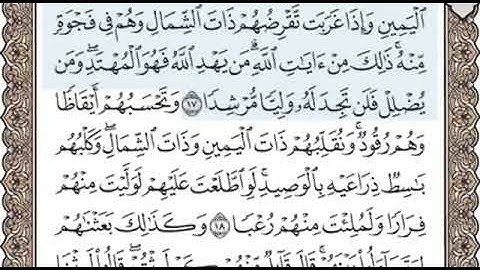 ٱلۡيَمِينِ وَإِذَا غَرَبَت تَّقۡرِضُهُمۡ ذَاتَ ٱلشِّمَالِ وَهُمۡ فِي فَجۡوَةٖ
مِّنۡهُۚ ذَٰلِكَ مِنۡ ءَايَٰتِ ٱللَّهِۗ مَن يَهۡدِ ٱللَّهُ فَهُوَ ٱلۡمُهۡتَدِۖ وَمَن
يُضۡلِلۡ فَلَن تَجِدَ لَهُۥ وَلِيّٗا مُّرۡشِدٗا ١٧ وَتَحۡسَبُهُمۡ أَيۡقَاظٗا
وَهُمۡ رُقُودٞۚ وَنُقَلِّبُهُمۡ ذَاتَ ٱلۡيَمِينِ وَذَاتَ ٱلشِّمَالِۖ وَكَلۡبُهُم
بَٰسِطٞ ذِرَاعَيۡهِ بِٱلۡوَصِيدِۚ لَوِ ٱطَّلَعۡتَ عَلَيۡهِمۡ لَوَلَّيۡتَ مِنۡهُمۡ
فِرَارٗا وَلَمُلِئۡتَ مِنۡهُمۡ رُعۡبٗا ١٨ وَكَذَٰلِكَ بَعَثۡنَٰهُمۡ